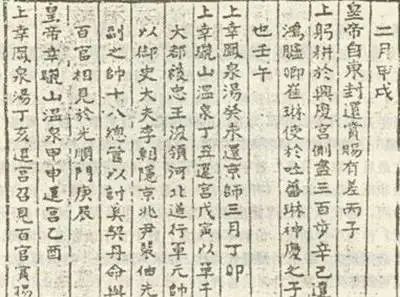 二月甲戌
皇帝自東封還賞賜有差丙子
上躬耕於興慶宮側盡三百步辛巳遣
鴻臚卿崔琳使於吐蕃琳神慶之子
也壬午
上幸鳳泉湯癸未還京師三月丁卯
上幸驪山溫泉丁丑還宮戊寅以單于
大都護忠王浚領河北道行軍元帥
以御史大夫李朝隱京兆尹裴伷先
副之帥十八總管以討奚契丹命與
百官相見於光順門庚辰
皇帝幸驪山溫泉甲申還宮乙酉
上幸鳳泉湯丁亥還宮召見百官賞賜